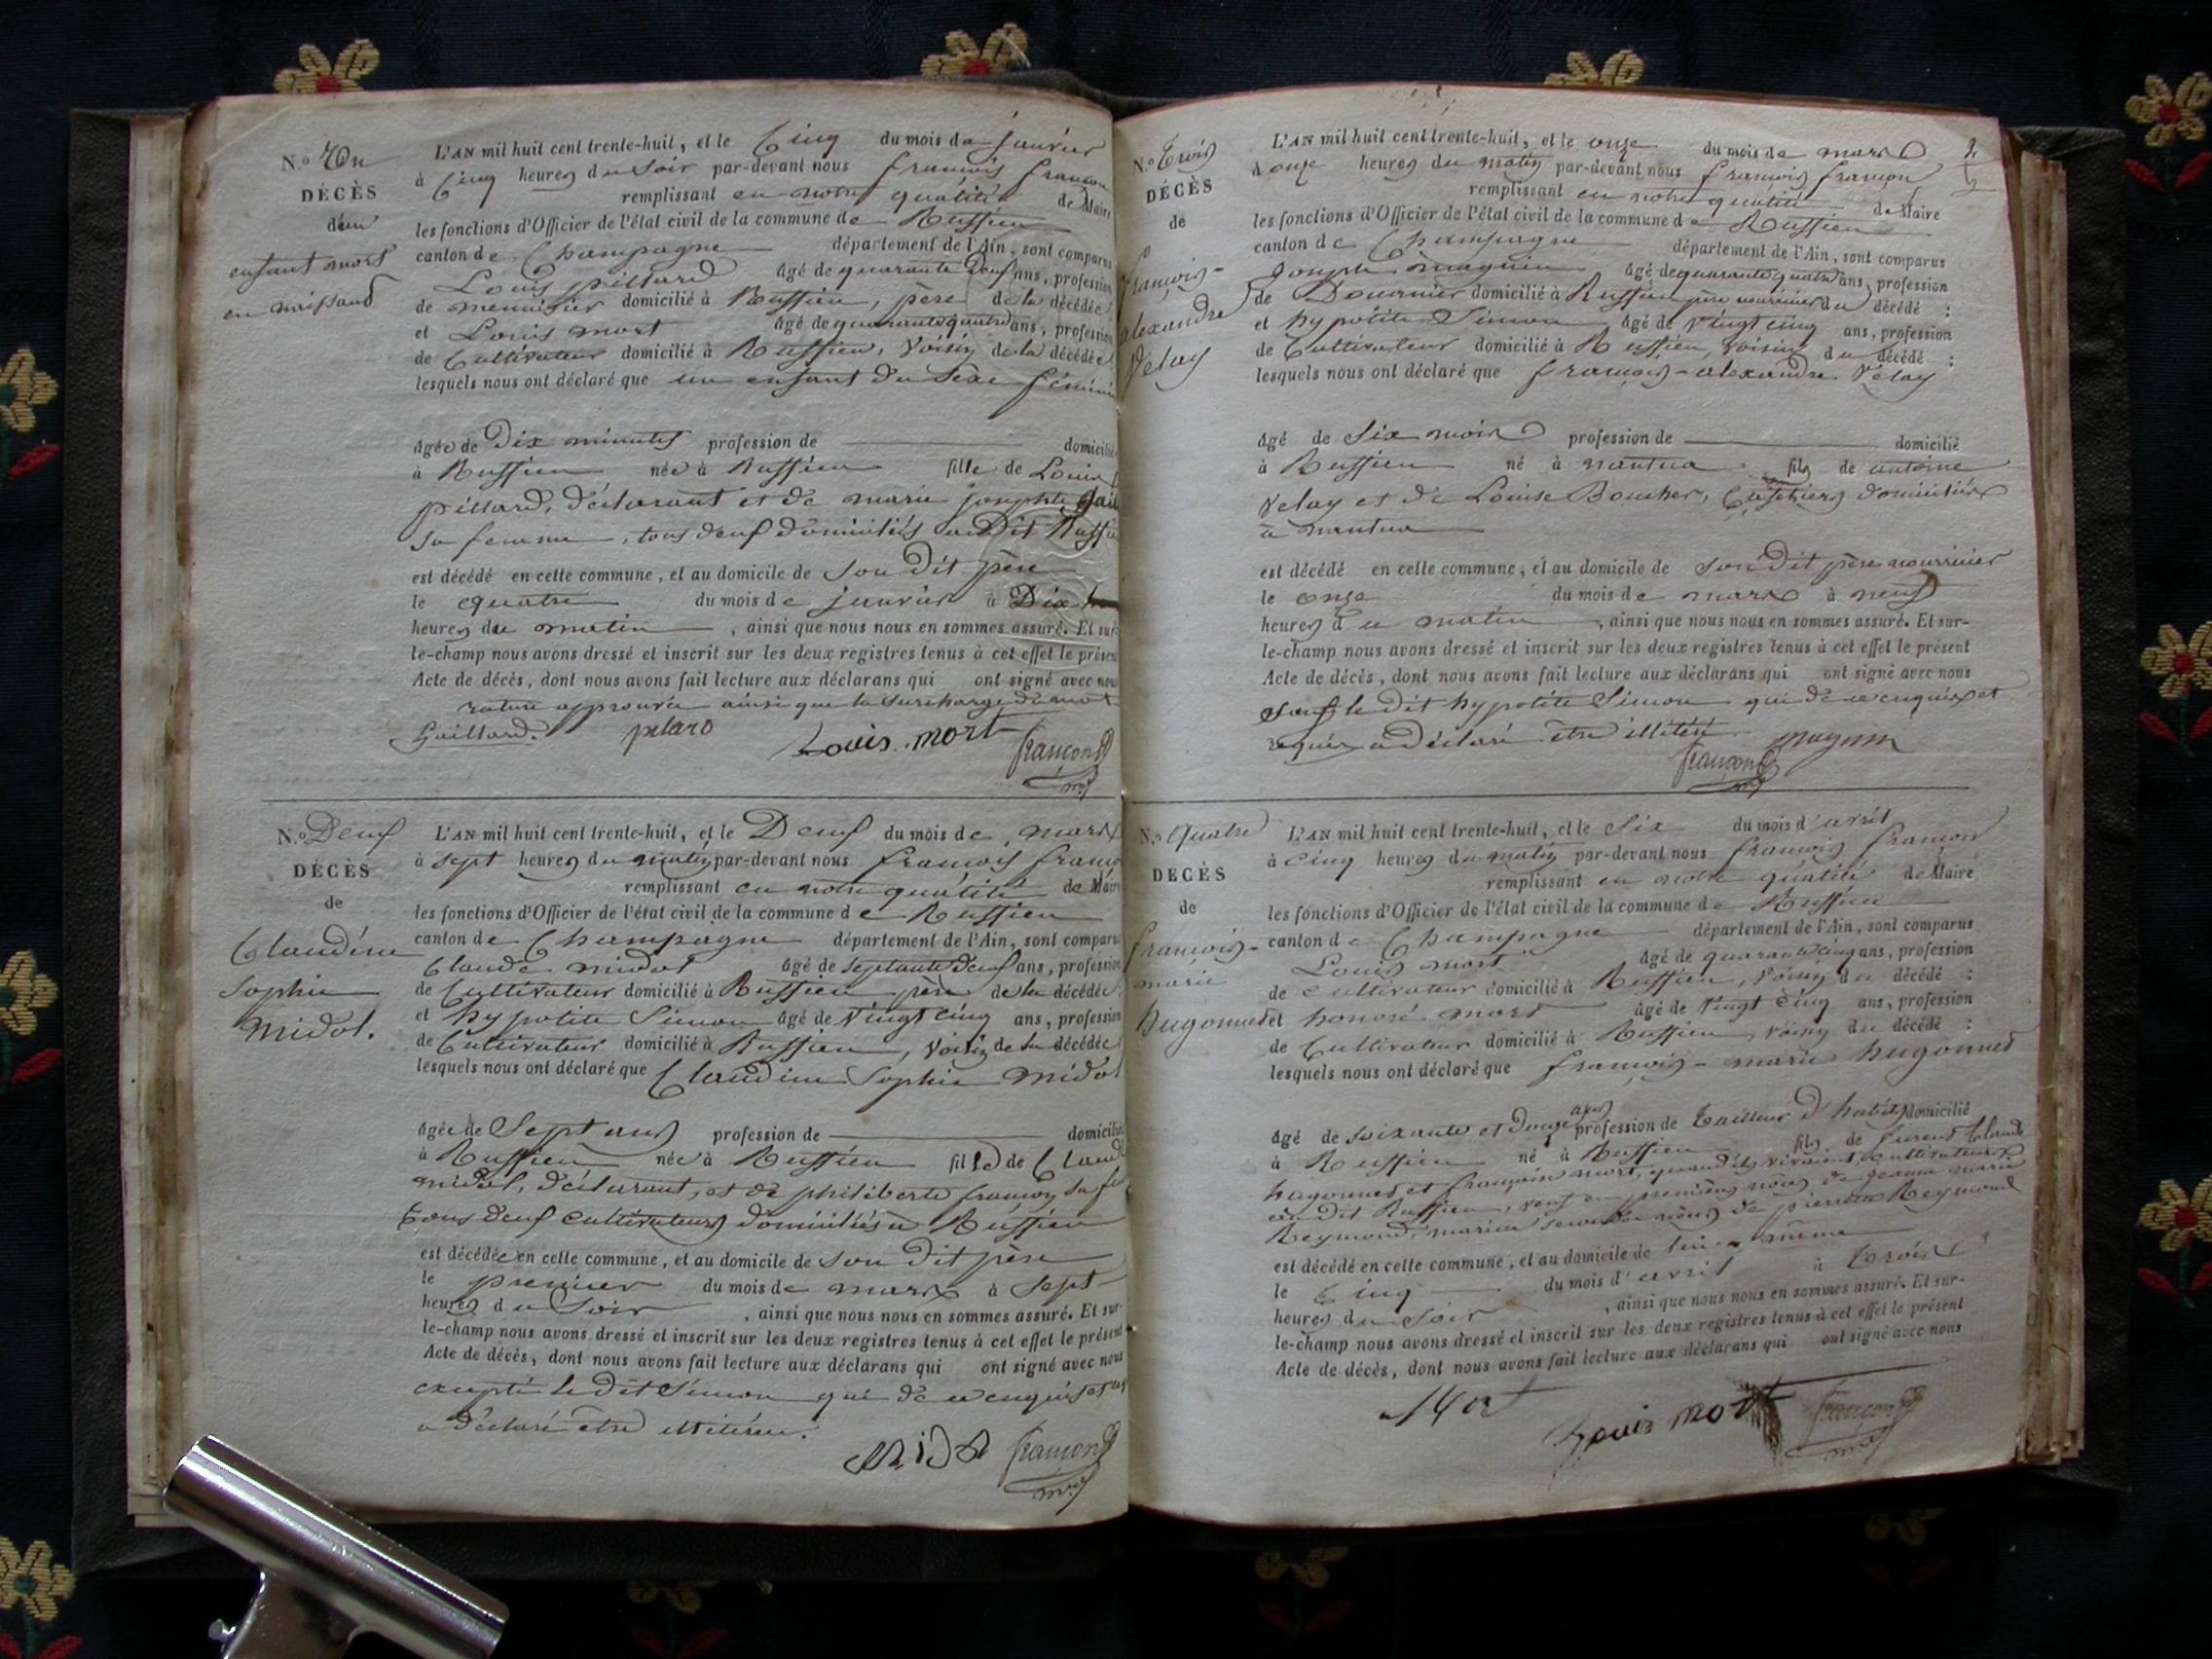 N.o Un
DÉCÈS
d'un
enfant mort
en naissant
L'AN mil huit cent trente-huit, et le Cinq du mois de janvier
à Cinq heures du soir par-devant nous françois françon
remplissant en notre qualité de Maire
les fonctions d'Officier de l'état civil de la commune de Ruffieu
canton de Champagne département de l'Ain, sont comparus
Louis pillard âgé de quarante deux ans, profession
de menuisier domicilié à Ruffieu, père de la décédée
et Louis mort âgé de quarante quatre ans, profession
de Cultivateur domicilié à Ruffieu, Voisin de la décédée
lesquels nous ont déclaré que un enfant du Sexe féminin
âgée de Dix minutes profession de domicilié
à Ruffieu née à Ruffieu fille de Louis
pillard, déclarant et de marie josephte
sa femme, tous deux domiciliés audit Ruffieu
est décédé en cette commune, et au domicile de son dit père
le quatre du mois de janvier à Dix
heures du matin, ainsi que nous nous en sommes assuré. Et sur-
le-champ nous avons dressé et inscrit sur les deux registres tenus à cet effet le présent
Acte de décès, dont nous avons fait lecture aux déclarans qui ont signé avec nous
rature approuvée ainsi que la surcharge du mot
Gaillard. pilard Louis mort françon
N.o Deux
DÉCÈS
de
Claudine
Sophie
Midol.
L'AN mil huit cent trente-huit, et le Deux du mois de mars
à sept heures du matin par-devant nous françois françon
remplissant en notre qualité de Maire
les fonctions d'Officier de l'état civil de la commune de Ruffieu
canton de Champagne département de l'Ain, sont comparus
Claude midol âgé de septante deux ans, profession
de Cultivateur domicilié à Ruffieu père de la décédée
et hypolite Simon âgé de Vingt cinq ans, profession
de Cultivateur domicilié à Ruffieu, Voisin de la décédée
lesquels nous ont déclaré que Claudine Sophie midol
âgée de Sept ans profession de domicilié
à Ruffieu née à Ruffieu fille de Claude
midol, déclarant, et de philiberte françon sa
tous deux cultivateurs domiciliés à Ruffieu
est décédée en cette commune, et au domicile de son dit père
le premier du mois de mars à sept
heures du soir, ainsi que nous nous en sommes assuré. Et sur-
le-champ nous avons dressé et inscrit sur les deux registres tenus à cet effet le présent
Acte de décès, dont nous avons fait lecture aux déclarans qui ont signé avec nous
excepté le dit Simon qui de ce enquis et
a déclaré être illitéré.
Midol françon
N.o Trois
DÉCÈS
de
françois-
alexandre
Velay
L'AN mil huit cent trente-huit, et le onze du mois de mars
à onze heures du matin par-devant nous françois françon
remplissant en notre qualité de Maire
les fonctions d'Officier de l'état civil de la commune de Ruffieu
canton de Champagne département de l'Ain, sont comparus
joseph maguin âgé de quarante quatre ans, profession
de domicilié à Ruffieu père nourricier du décédé ;
et hypolite Simon âgé de Vingt cinq ans, profession
de Cultivateur domicilié à Ruffieu, voisin du décédé ;
lesquels nous ont déclaré que françois-alexandre Velay
âgé de Six mois profession de domicilié
à Ruffieu né à nantua fils de antoine
Velay et de Louise Boucher, domiciliés
à nantua
est décédé en cette commune, et au domicile de son dit père nourricier
le onze du mois de mars à neuf
heures du matin, ainsi que nous nous en sommes assuré. Et sur-
le-champ nous avons dressé et inscrit sur les deux registres tenus à cet effet le présent
Acte de décès, dont nous avons fait lecture aux déclarans qui ont signé avec nous
sauf le dit hypolite Simon qui de ce enquis et
requis a déclaré être illitéré
maguin
françon
N.o quatre
DÉCÈS
de
françois-
marie
hugonnet
L'AN mil huit cent trente-huit, et le Six du mois d'avril
à cinq heures du matin par-devant nous françois françon
remplissant en notre qualité de Maire
les fonctions d'Officier de l'état civil de la commune de Ruffieu
canton de Champagne département de l'Ain, sont comparus
Louis mort âgé de quarante cinq ans, profession
de cultivateur domicilié à Ruffieu, Voisin du décédé ;
et honoré mort âgé de Vingt cinq ans, profession
de Cultivateur domicilié à Ruffieu, Voisin du décédé ;
lesquels nous ont déclaré que françois-marie hugonnet
âgé de soixante et douze ans profession de Tailleur d'habits domicilié
à Ruffieu né à Ruffieu fils de furent Claude
hugonnet et françoise mort, quand ils vivaient cultivateurs
au dit Ruffieu, veuf en premières noces de jeanne marie
Reymond, marié en secondes noces de pierrette Reymond
est décédé en cette commune, et au domicile de lui-même
le Cinq du mois d'avril à Trois
heures du soir, ainsi que nous nous en sommes assuré. Et sur-
le-champ nous avons dressé et inscrit sur les deux registres tenus à cet effet le présent
Acte de décès, dont nous avons fait lecture aux déclarans qui ont signé avec nous
Mort Louis mort françon